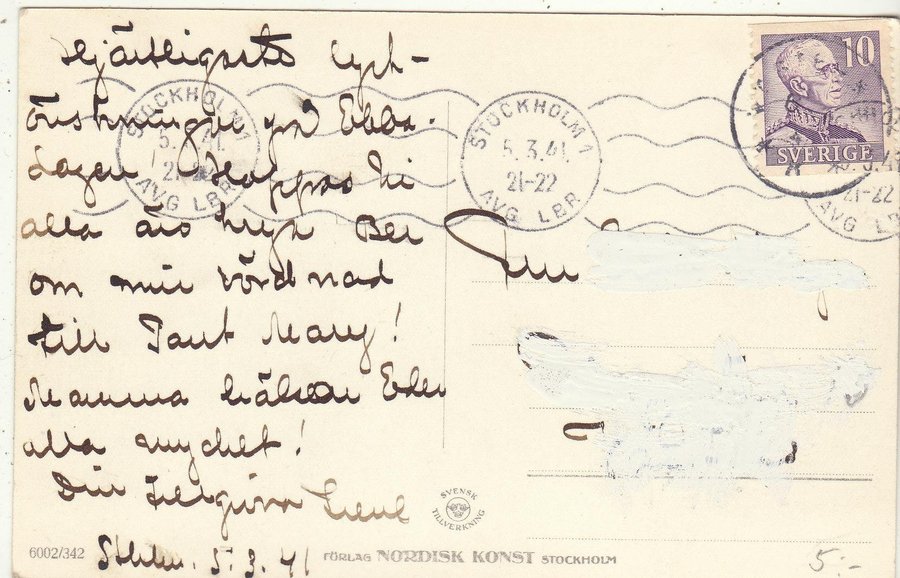 Hjärtligaste lyck-
önskningar på Ebba-
dagen Hoppas Ni
alla äro kry Ber
om min vördnad
till Tant Mary!
Mamma hälsar Eder
alla mycket!
Din tillgivna
Sthlm. 5.3.41
STOCKHOLM 1
5.3.41.
AVG LBR
STOCKHOLM 1
5.3.41.
21-22
AVG LBR
10
SVERIGE
21-22
AVG LBR
SVENSK
TILLVERKNING
6002/342
FÖRLAG NORDISK KONST STOCKHOLM
5:-